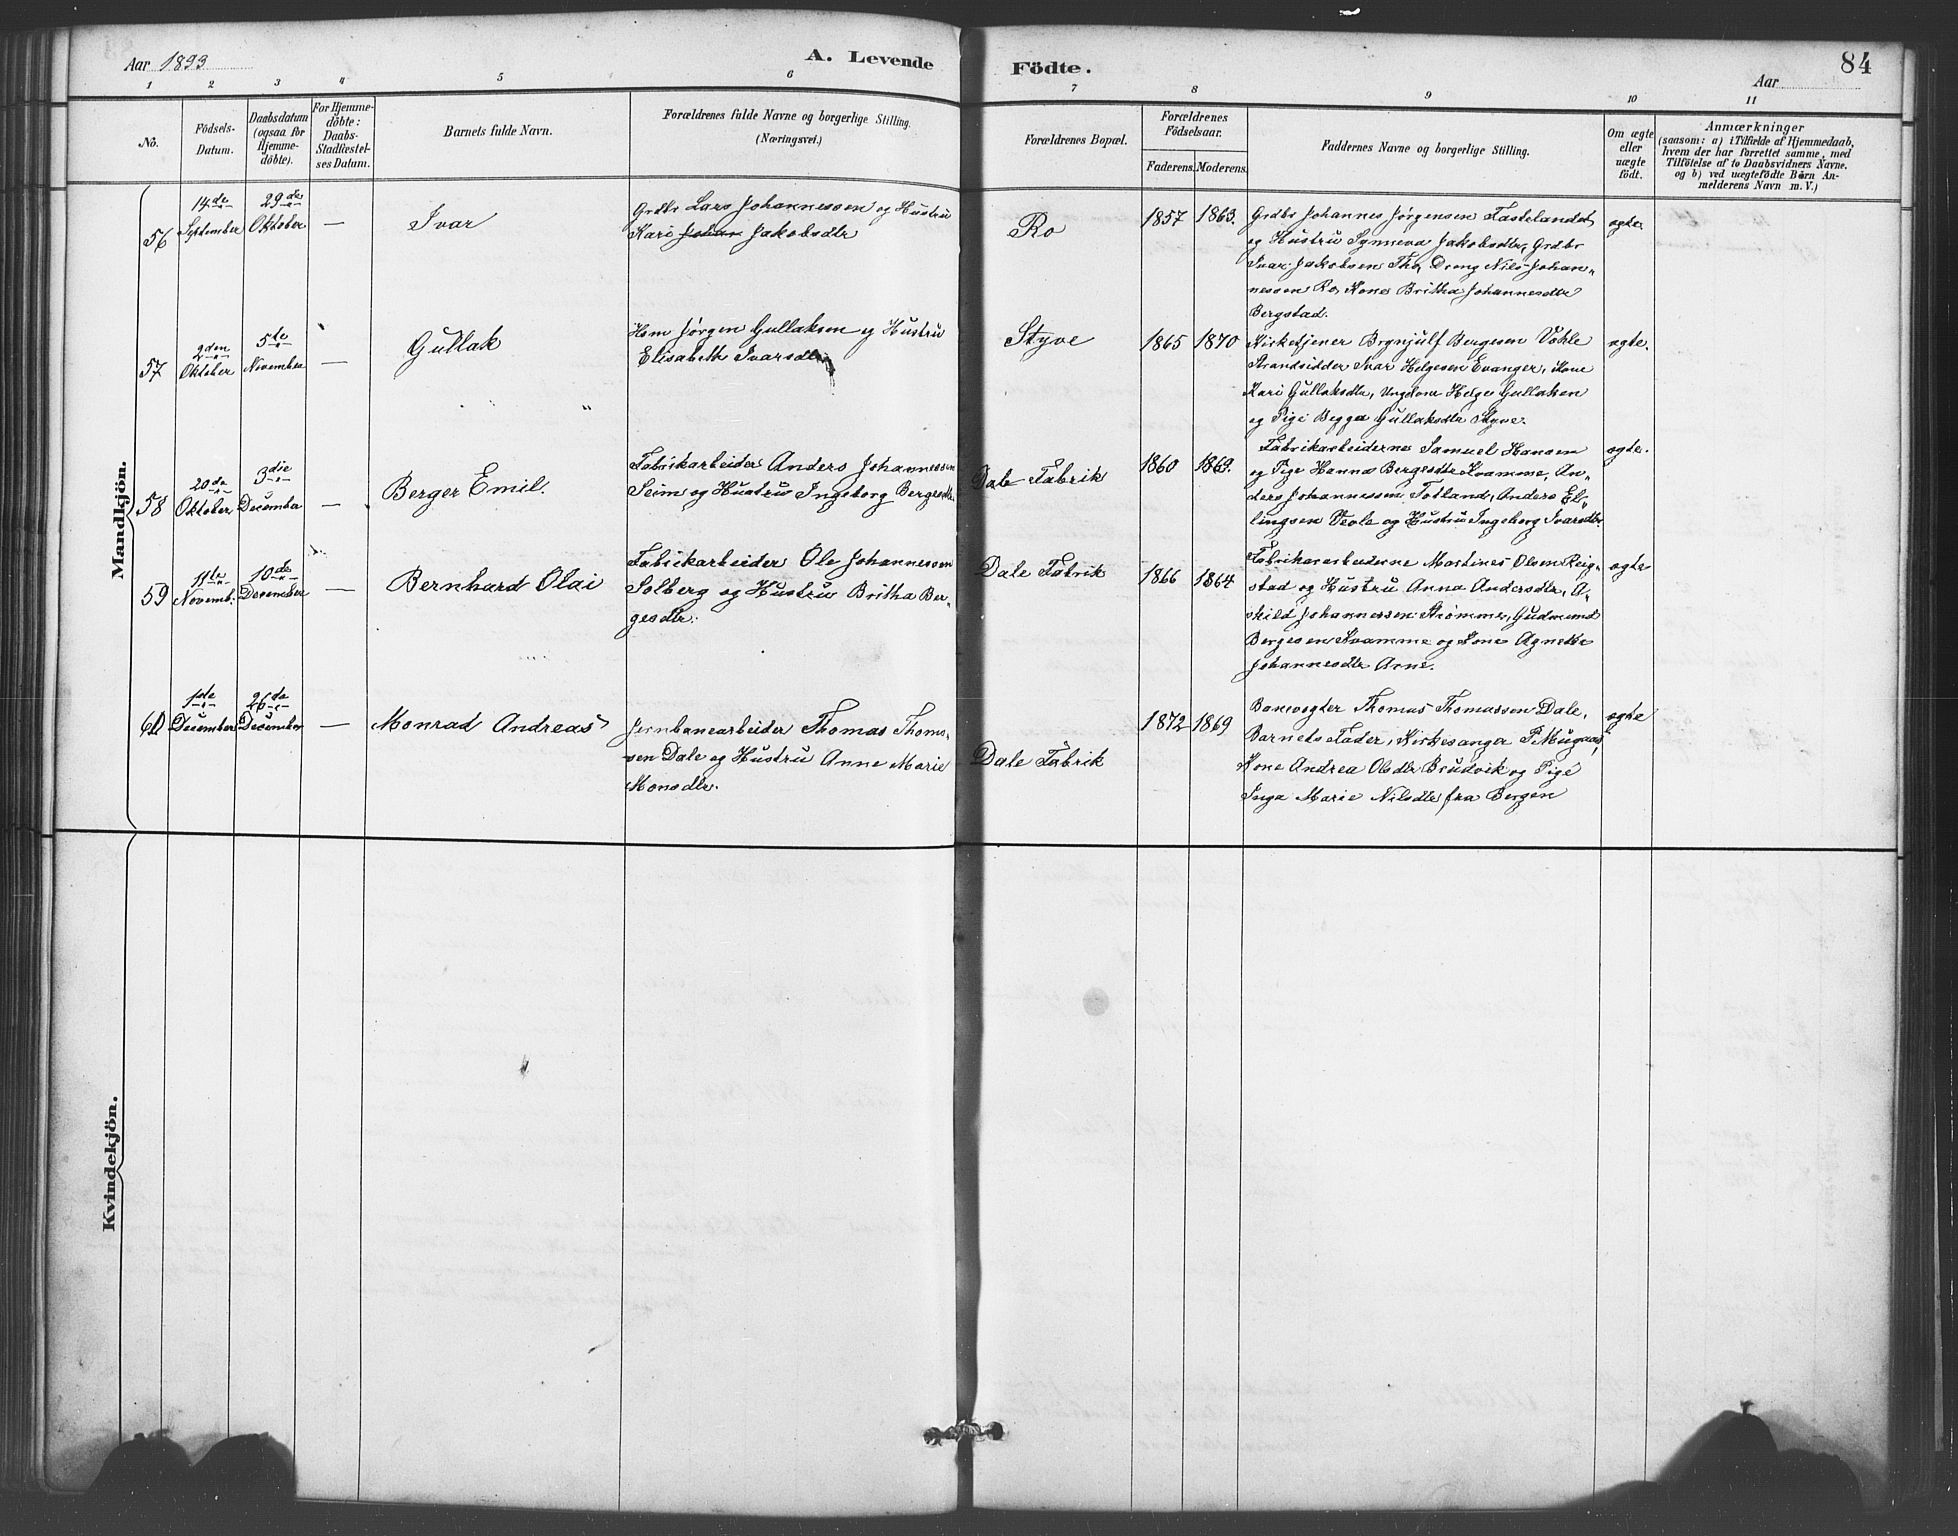 Aar 1893
A. Levende Födte.
Aar
84
1 2 3 4 5 6 7 8 9 10 11
No.
Födsels-
Datum.
Daabsdatum
(ogsaa for
Hjemme-
döbte).
For Hjemme-
döbte:
Daabs-
Stadfæstel-
ses Datum.
Barnets fulde Navn.
Forældrenes fulde Navne og borgerlige Stilling.
(Næringsvei.)
Forældrenes Bopæl.
Forældrenes
Födselsaar.
Faderens. Moderens.
Faddernes Navne og borgerlige Stilling.
Om ægte
eller
uægte
födt.
Anmærkninger
(saasom: a) i Tilfælde af Hjemmedaab,
hvem der har forrettet samme, med
Tilföielse af to Daabsvidners Navne.
og b) ved uægtefödte Börn An-
melderens Navn m. V.)
Mandkjön.
56
14de
September
29de
Oktober
—
Ivar
Grdbr Lars Johannessen og Hustru
Kari Johan Jakobsdtr
Ro
1857 1863.
Grdbr Johannes Jørgensen Fastelandet
og Hustru Synneva Jakobsdtr, Grdbr
Ivar Jakobsen Thø, Dreng Nils Johan-
nessen Ro, Kone Britha Johannesdtr
Bergstad.
ægte
57
2den
Oktober
5te
November
—
Gullak
Hsm Jørgen Gullaksen og Hustru
Elisabeth Ivarsdtr
Styve
1865 1870
Kirketjener Brynjulf Bergesen Vohle
Strandsidder Ivar Helgesen Evanger, Kone
Kari Gullaksdtr, Ungdom Helge Gullaksen
og Pige Begga Gullaksdtr Styve.
ægte.
58
20de
Oktober
3die
December
—
Berger Emil.
Fabrikarbeider Anders Johannessen
Seim og Hustru Ingeborg Bergesdtr.
Dale Fabrik
1860 1869.
Fabrikarbeiderne Samuel Hansen
og Pige Hanna Bergesdtr Kvamme, An-
ders Johannessen Totland, Anders El-
lingsen Veole og Hustru Ingeborg Ivarsdtr
ægte.
59
11te
Novemb:
10de
December
—
Bernhard Olai
Fabrikarbeider Ole Johannessen
Solberg og Hustru Britha Ber-
gesdtr.
Dale Fabrik
1866 1864
Fabrikarbeiderne Mastines Olsen Reig-
stad og Hustru Anna Andersdtr, A-
skild Johannessen Strømme, Gudmund
Bergesen Kvamme og Kone Agnethe
Johannesdtr Arne.
ægte
60
1ste
December
26de
December
—
Monrad Andreas
Jernbanearbeider Thomas Thoms-
sen Dale og Hustru Anne Marie
Monsdtr.
Dale Fabrik
1872 1869
Banevogter Thomas Thomassen Dale,
Barnets Fader, Kirkesanger P. Mugaas,
Kone Andrea Olsdtr Brudvik og Pige
Inga Marie Nilsdtr fra Bergen
ægte
Kvindekjön.